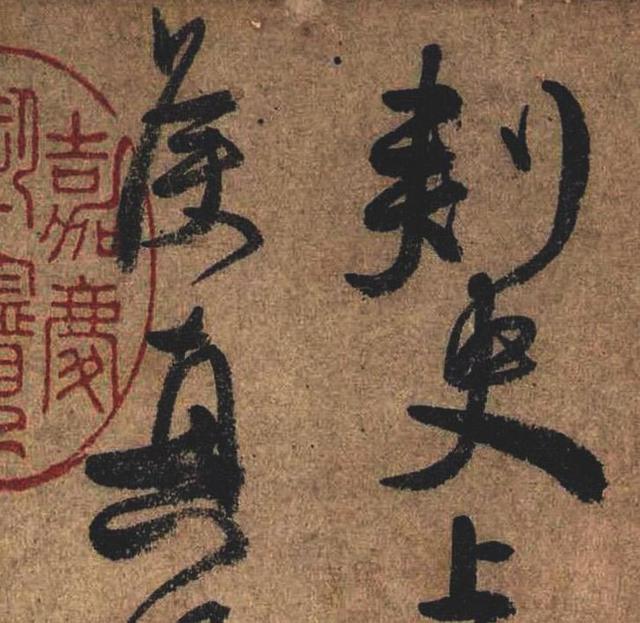 刺史上
侯真
嘉慶